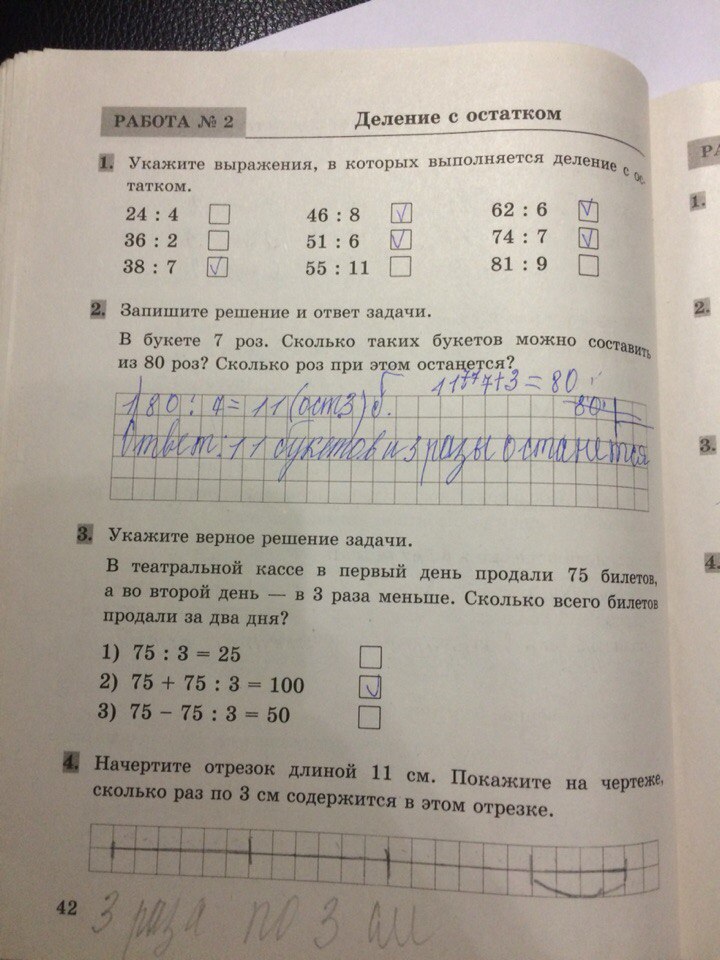 РАБОТА № 2
Деление с остатком
1. Укажите выражения, в которых выполняется деление с ос-
татком.
24 : 4 46 : 8 62 : 6
36 : 2 51 : 6 74 : 7
38 : 7 55 : 11 81 : 9
2. Запишите решение и ответ задачи.
В букете 7 роз. Сколько таких букетов можно составить
из 80 роз? Сколько роз при этом останется?
11*7+3=80
1) 80 : 7 = 11 (ост3) б. 80
Ответ: 11 букетов и 3 разы останется
3. Укажите верное решение задачи.
В театральной кассе в первый день продали 75 билетов,
а во второй день — в 3 раза меньше. Сколько всего билетов
продали за два дня?
1) 75 : 3 = 25
2) 75 + 75 : 3 = 100
3) 75 − 75 : 3 = 50
4. Начертите отрезок длиной 11 см. Покажите на чертеже,
сколько раз по 3 см содержится в этом отрезке.
42
3 раза по 3 см
РА
1.
2.
3.
4.